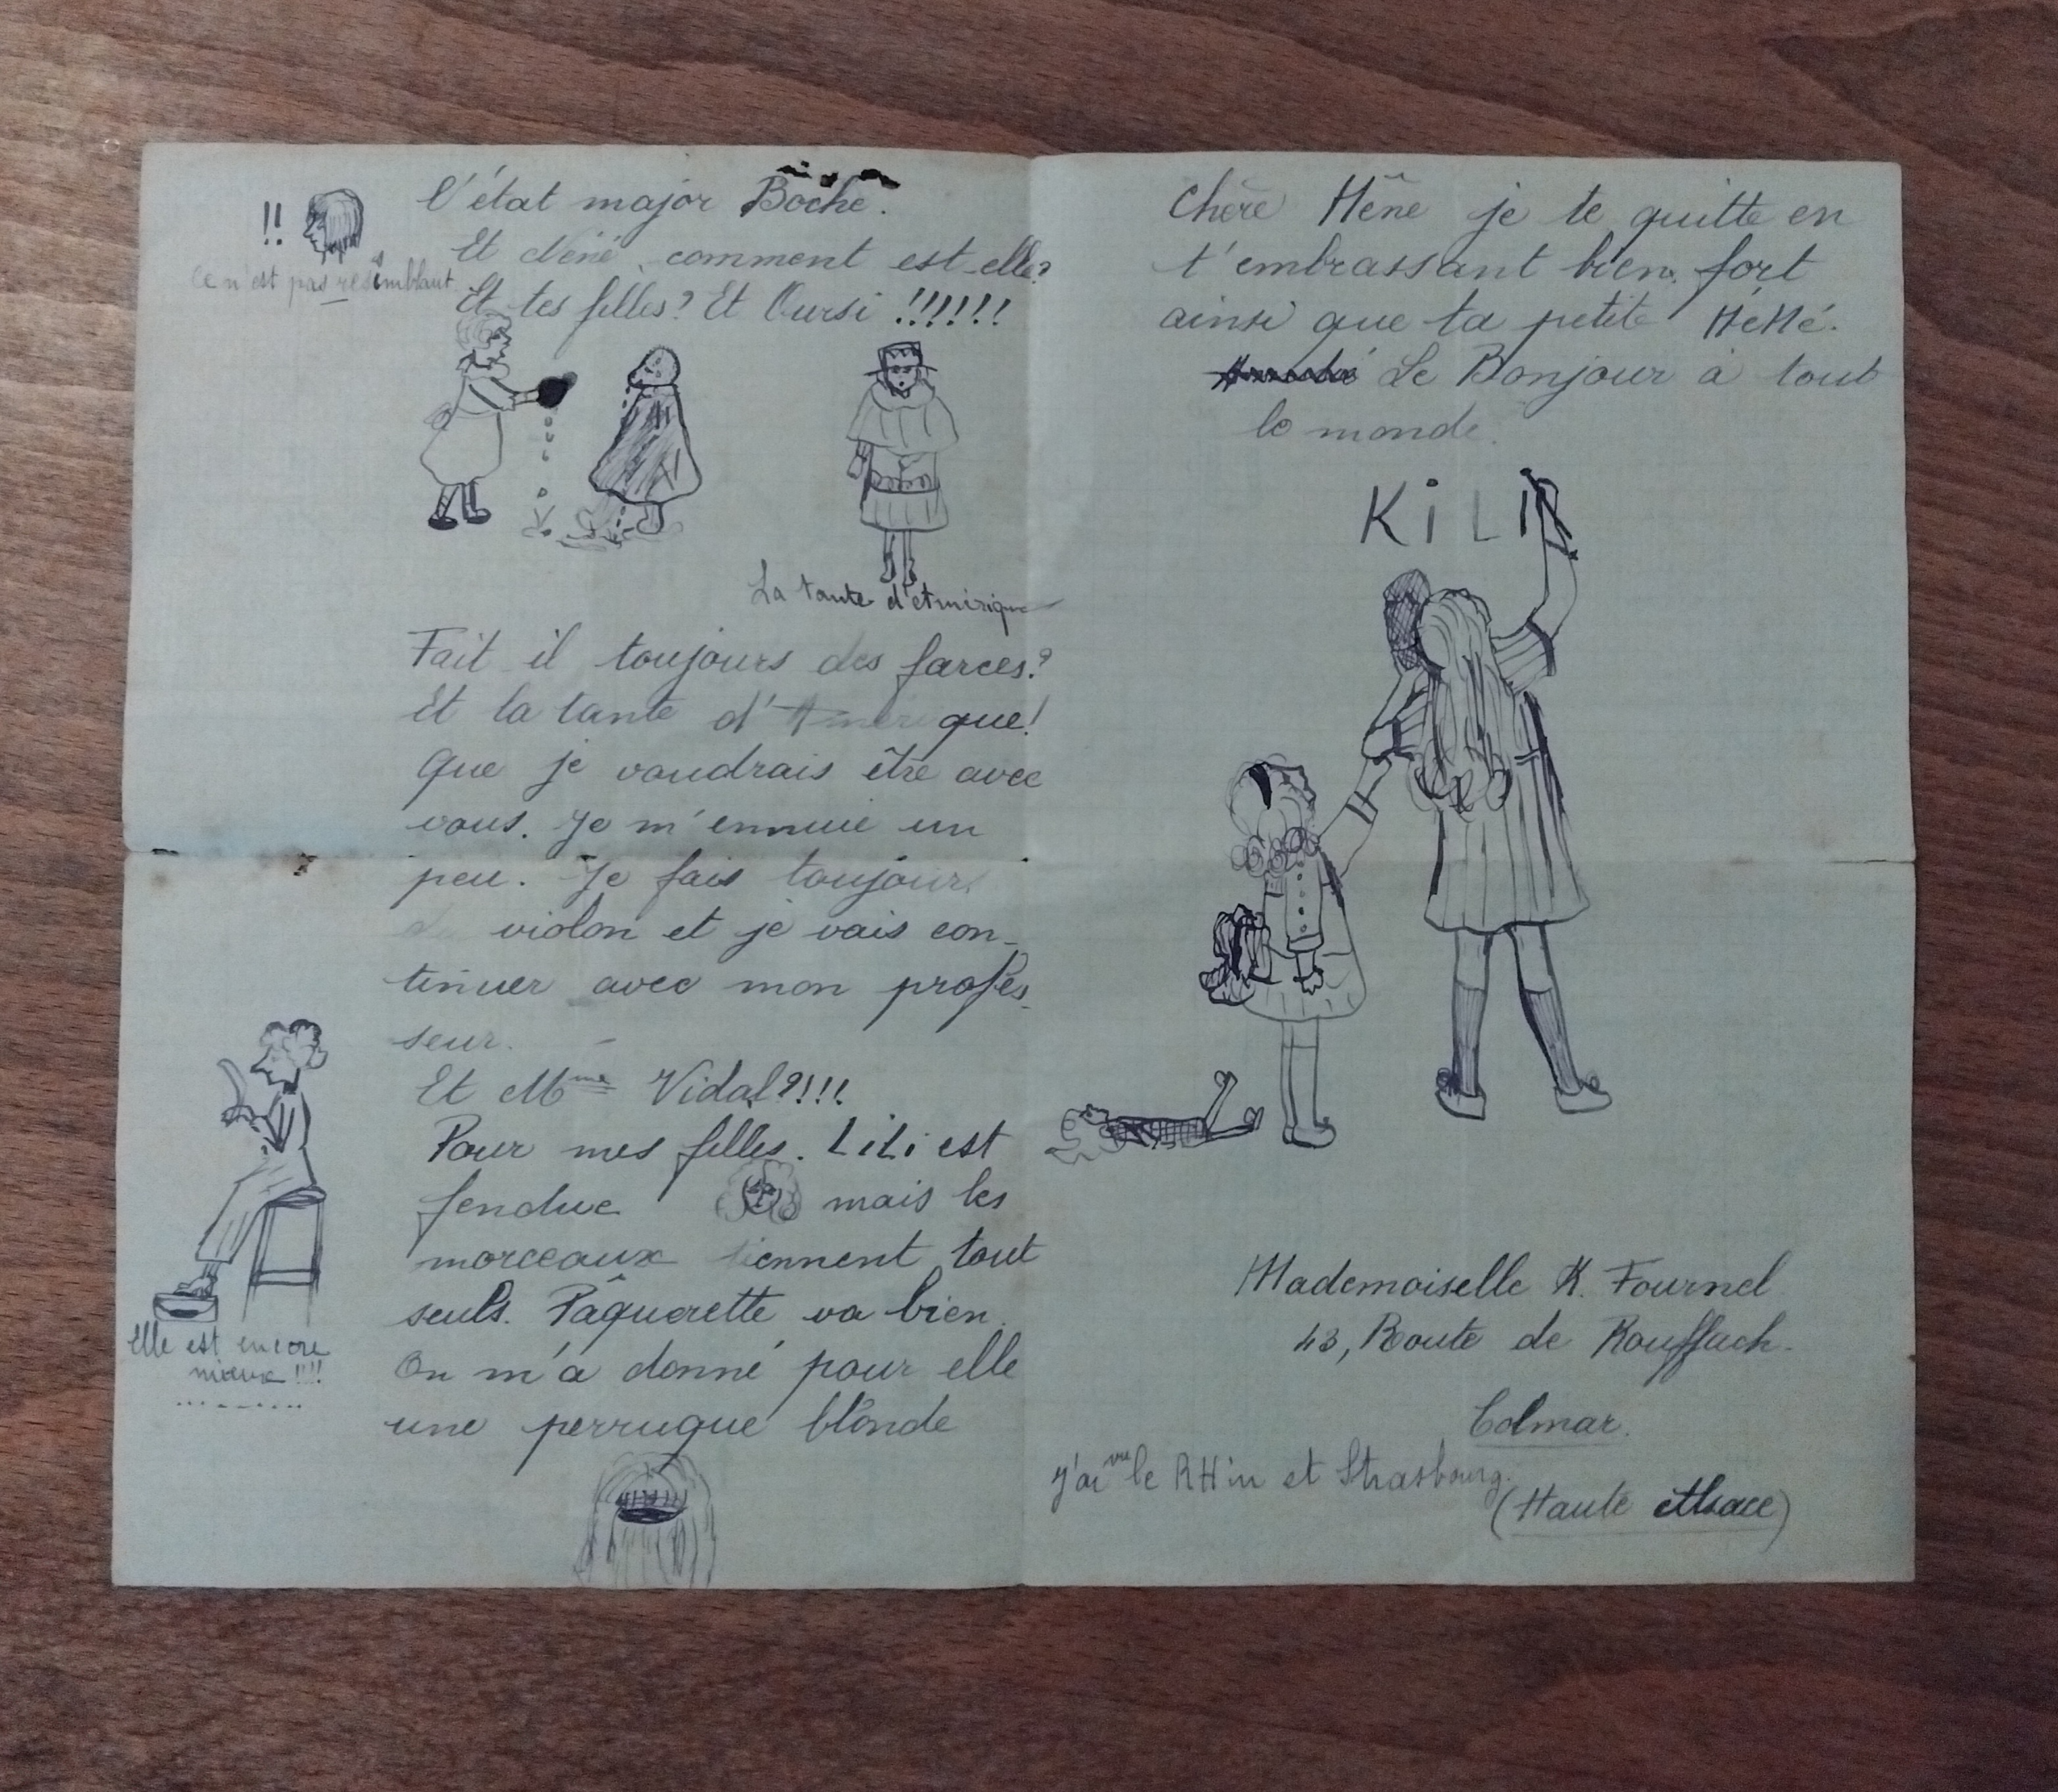 l'état major Boche.
!!
ce n'est pas ressemblant.
Et Néné, comment est-elle?
Et tes filles? Et Oursi !!!!!!
La tante d'Amérique
Fait il toujours des farces?
Et la tante d'Amérique!
Que je voudrais être avec
vous. Je m'ennuie un
peu. Je fais toujours
du violon et je vais con-
tinuer avec mon profes-
seur.
Et Mme Vidal?!!!
Pour mes filles. LiLi est
fendue mais les
morceaux tiennent tout
seuls. Pâquerette va bien.
On m'a donné pour elle
une perruque blonde
elle est encore
mieux !!!!
Chère Hêne je te quitte en
t'embrassant bien fort
ainsi que ta petite
Le Bonjour à tout
le monde.
KiLi
Mademoiselle K. Fournel
43, Route de Rouffach.
Colmar.
j'ai vu le RHin et Strasbourg.
(Haute Alsace)